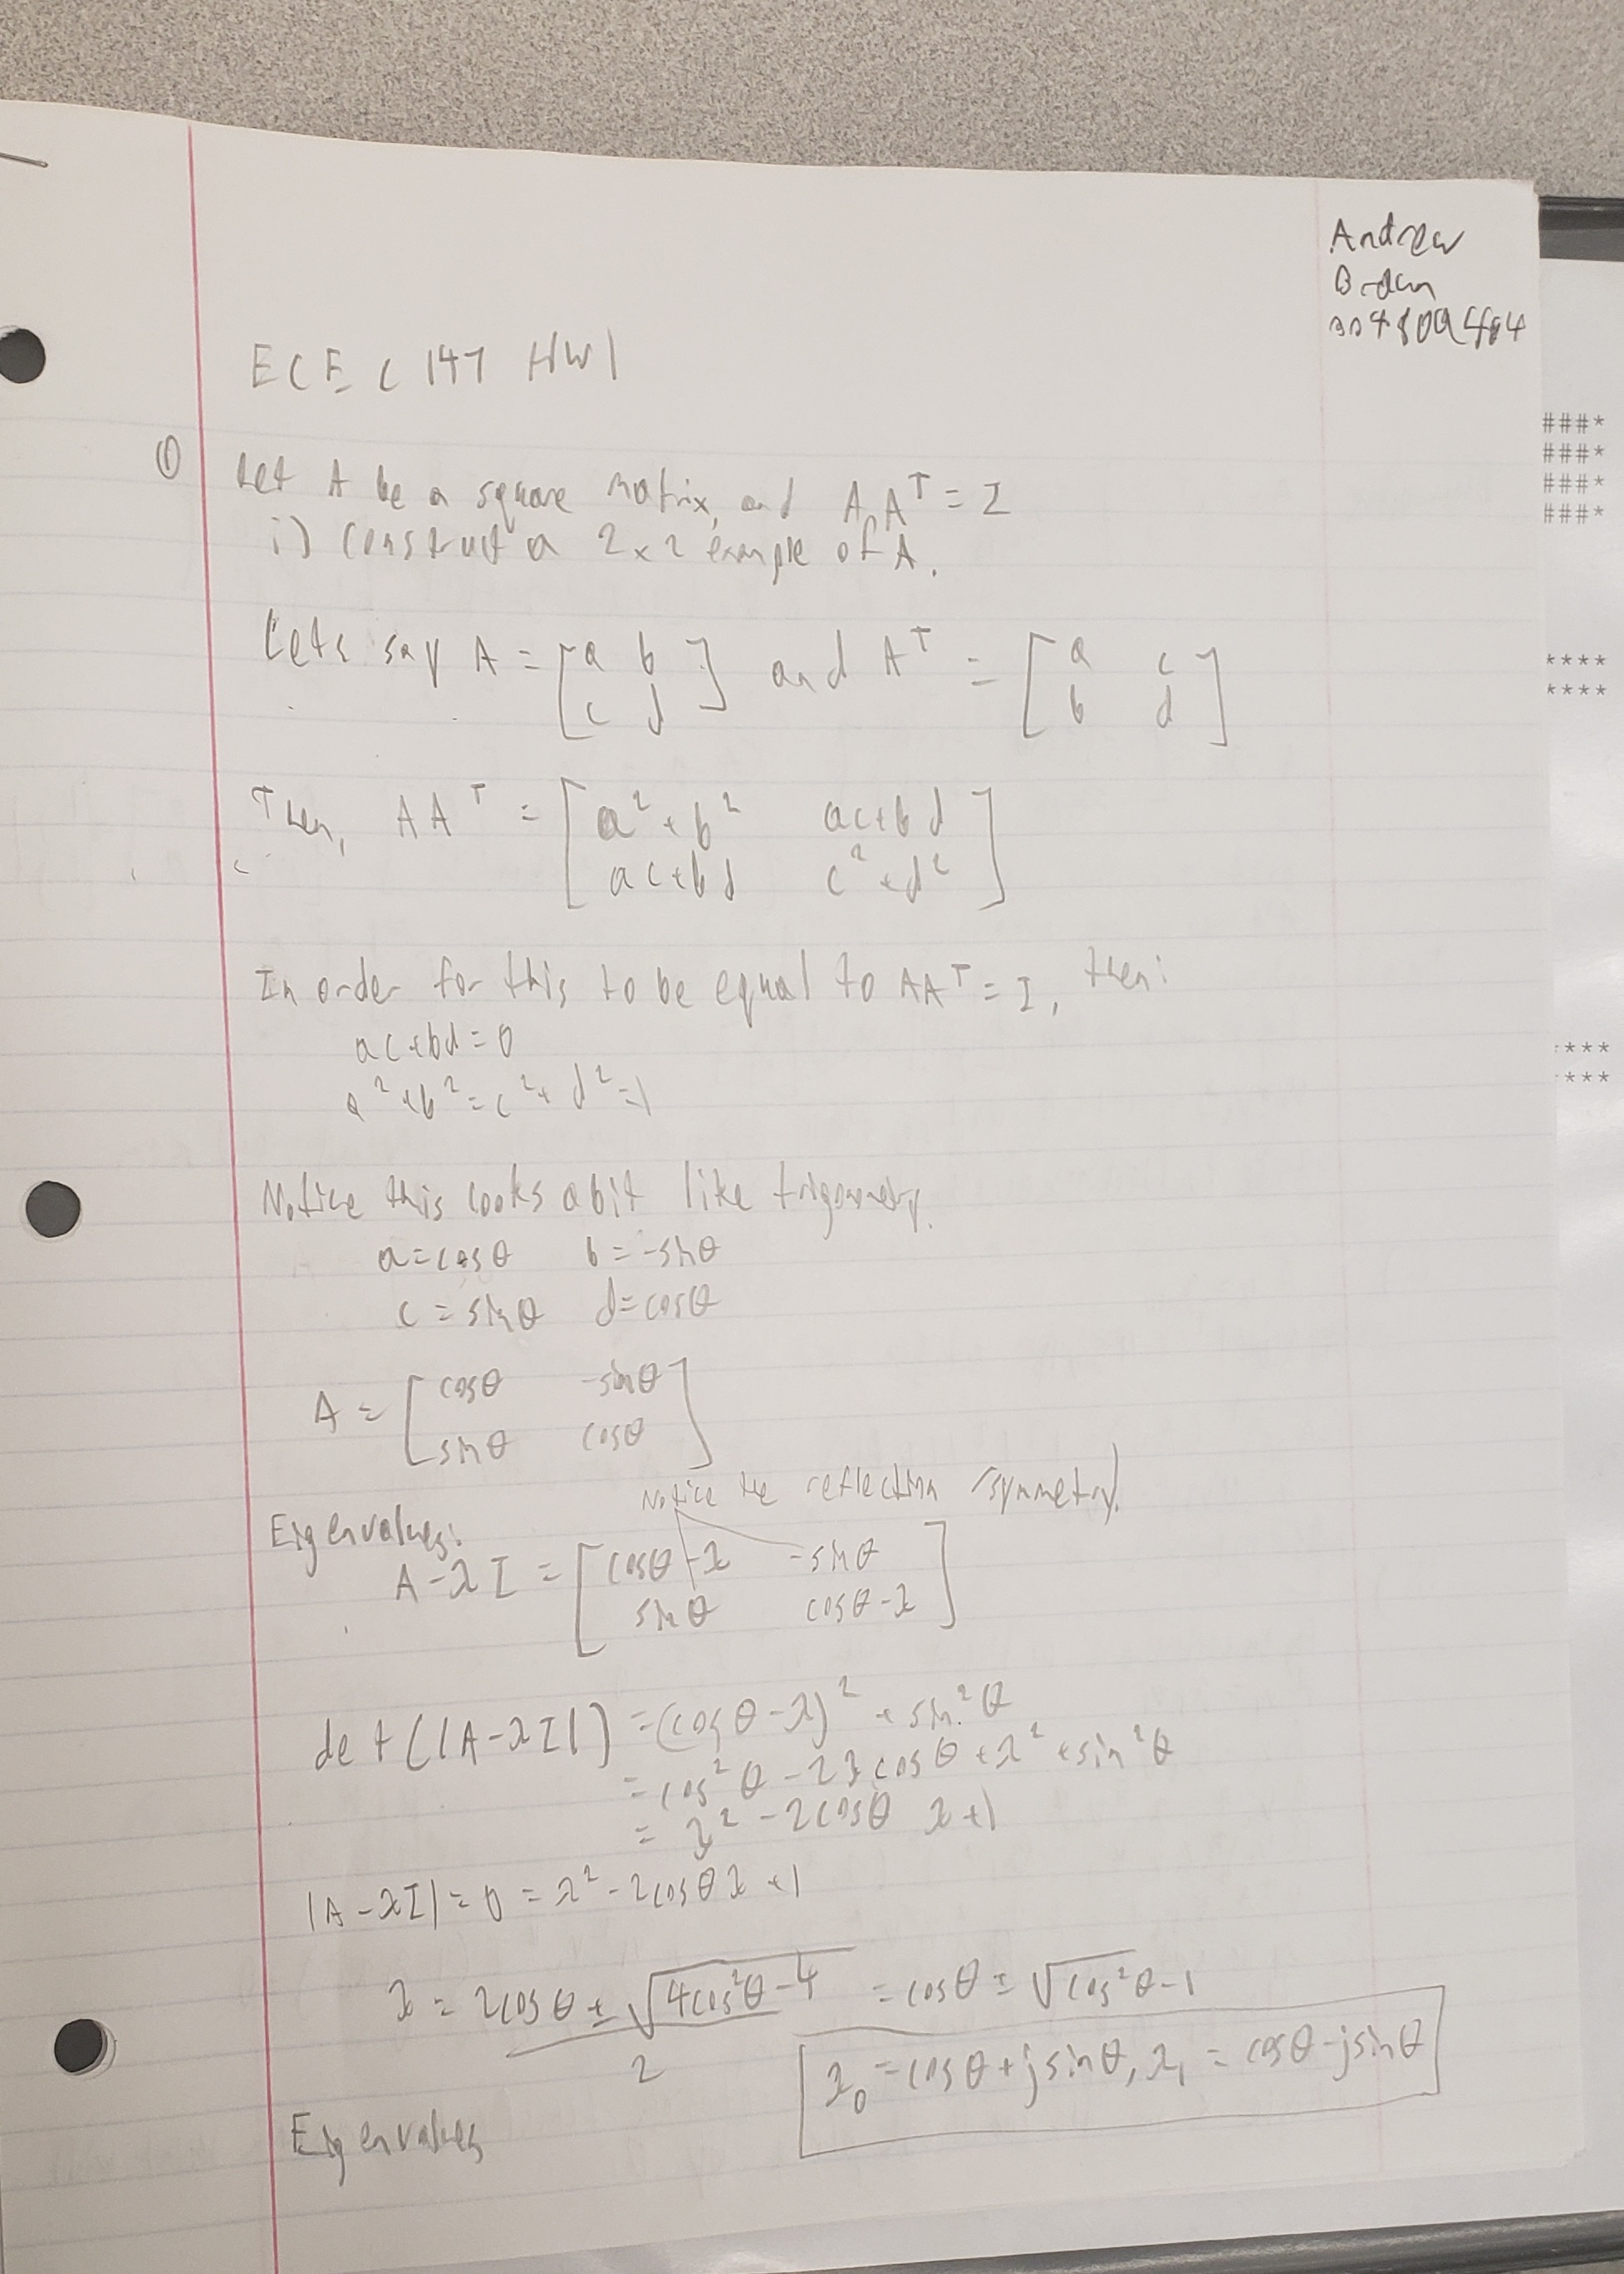 Andrew
ECE C 147 HW1
① Let A be a square matrix, and AAᵀ = I
i) Construct a 2x2 example of A.
Lets say A = [a b; c d] and Aᵀ = [a c; b d]
Then, AAᵀ = [a²+b² ac+bd; ac+bd c²+d²]
In order for this to be equal to AAᵀ = I, then:
ac+bd=0
a²+b²=c²+d²=1
Notice this looks a bit like trigonometry.
a=cosθ b=-sinθ
c=sinθ d=cosθ
A = [cosθ -sinθ; sinθ cosθ]
Notice the reflection symmetry.
Eigenvalues:
A-λI = [cosθ-λ -sinθ; sinθ cosθ-λ]
det(|A-λI|) = (cosθ-λ)² + sin²θ
= cos²θ - 2λcosθ + λ² + sin²θ
= λ² - 2cosθ λ + 1
|A-λI| = 0 = λ² - 2cosθλ + 1
λ = 2cosθ ± √4cos²θ-4 / 2 = cosθ ± √cos²θ-1
λ₀ = cosθ + jsinθ, λ₁ = cosθ - jsinθ
Eigenvalues
###*
###*
###*
###*
****
****
***
***